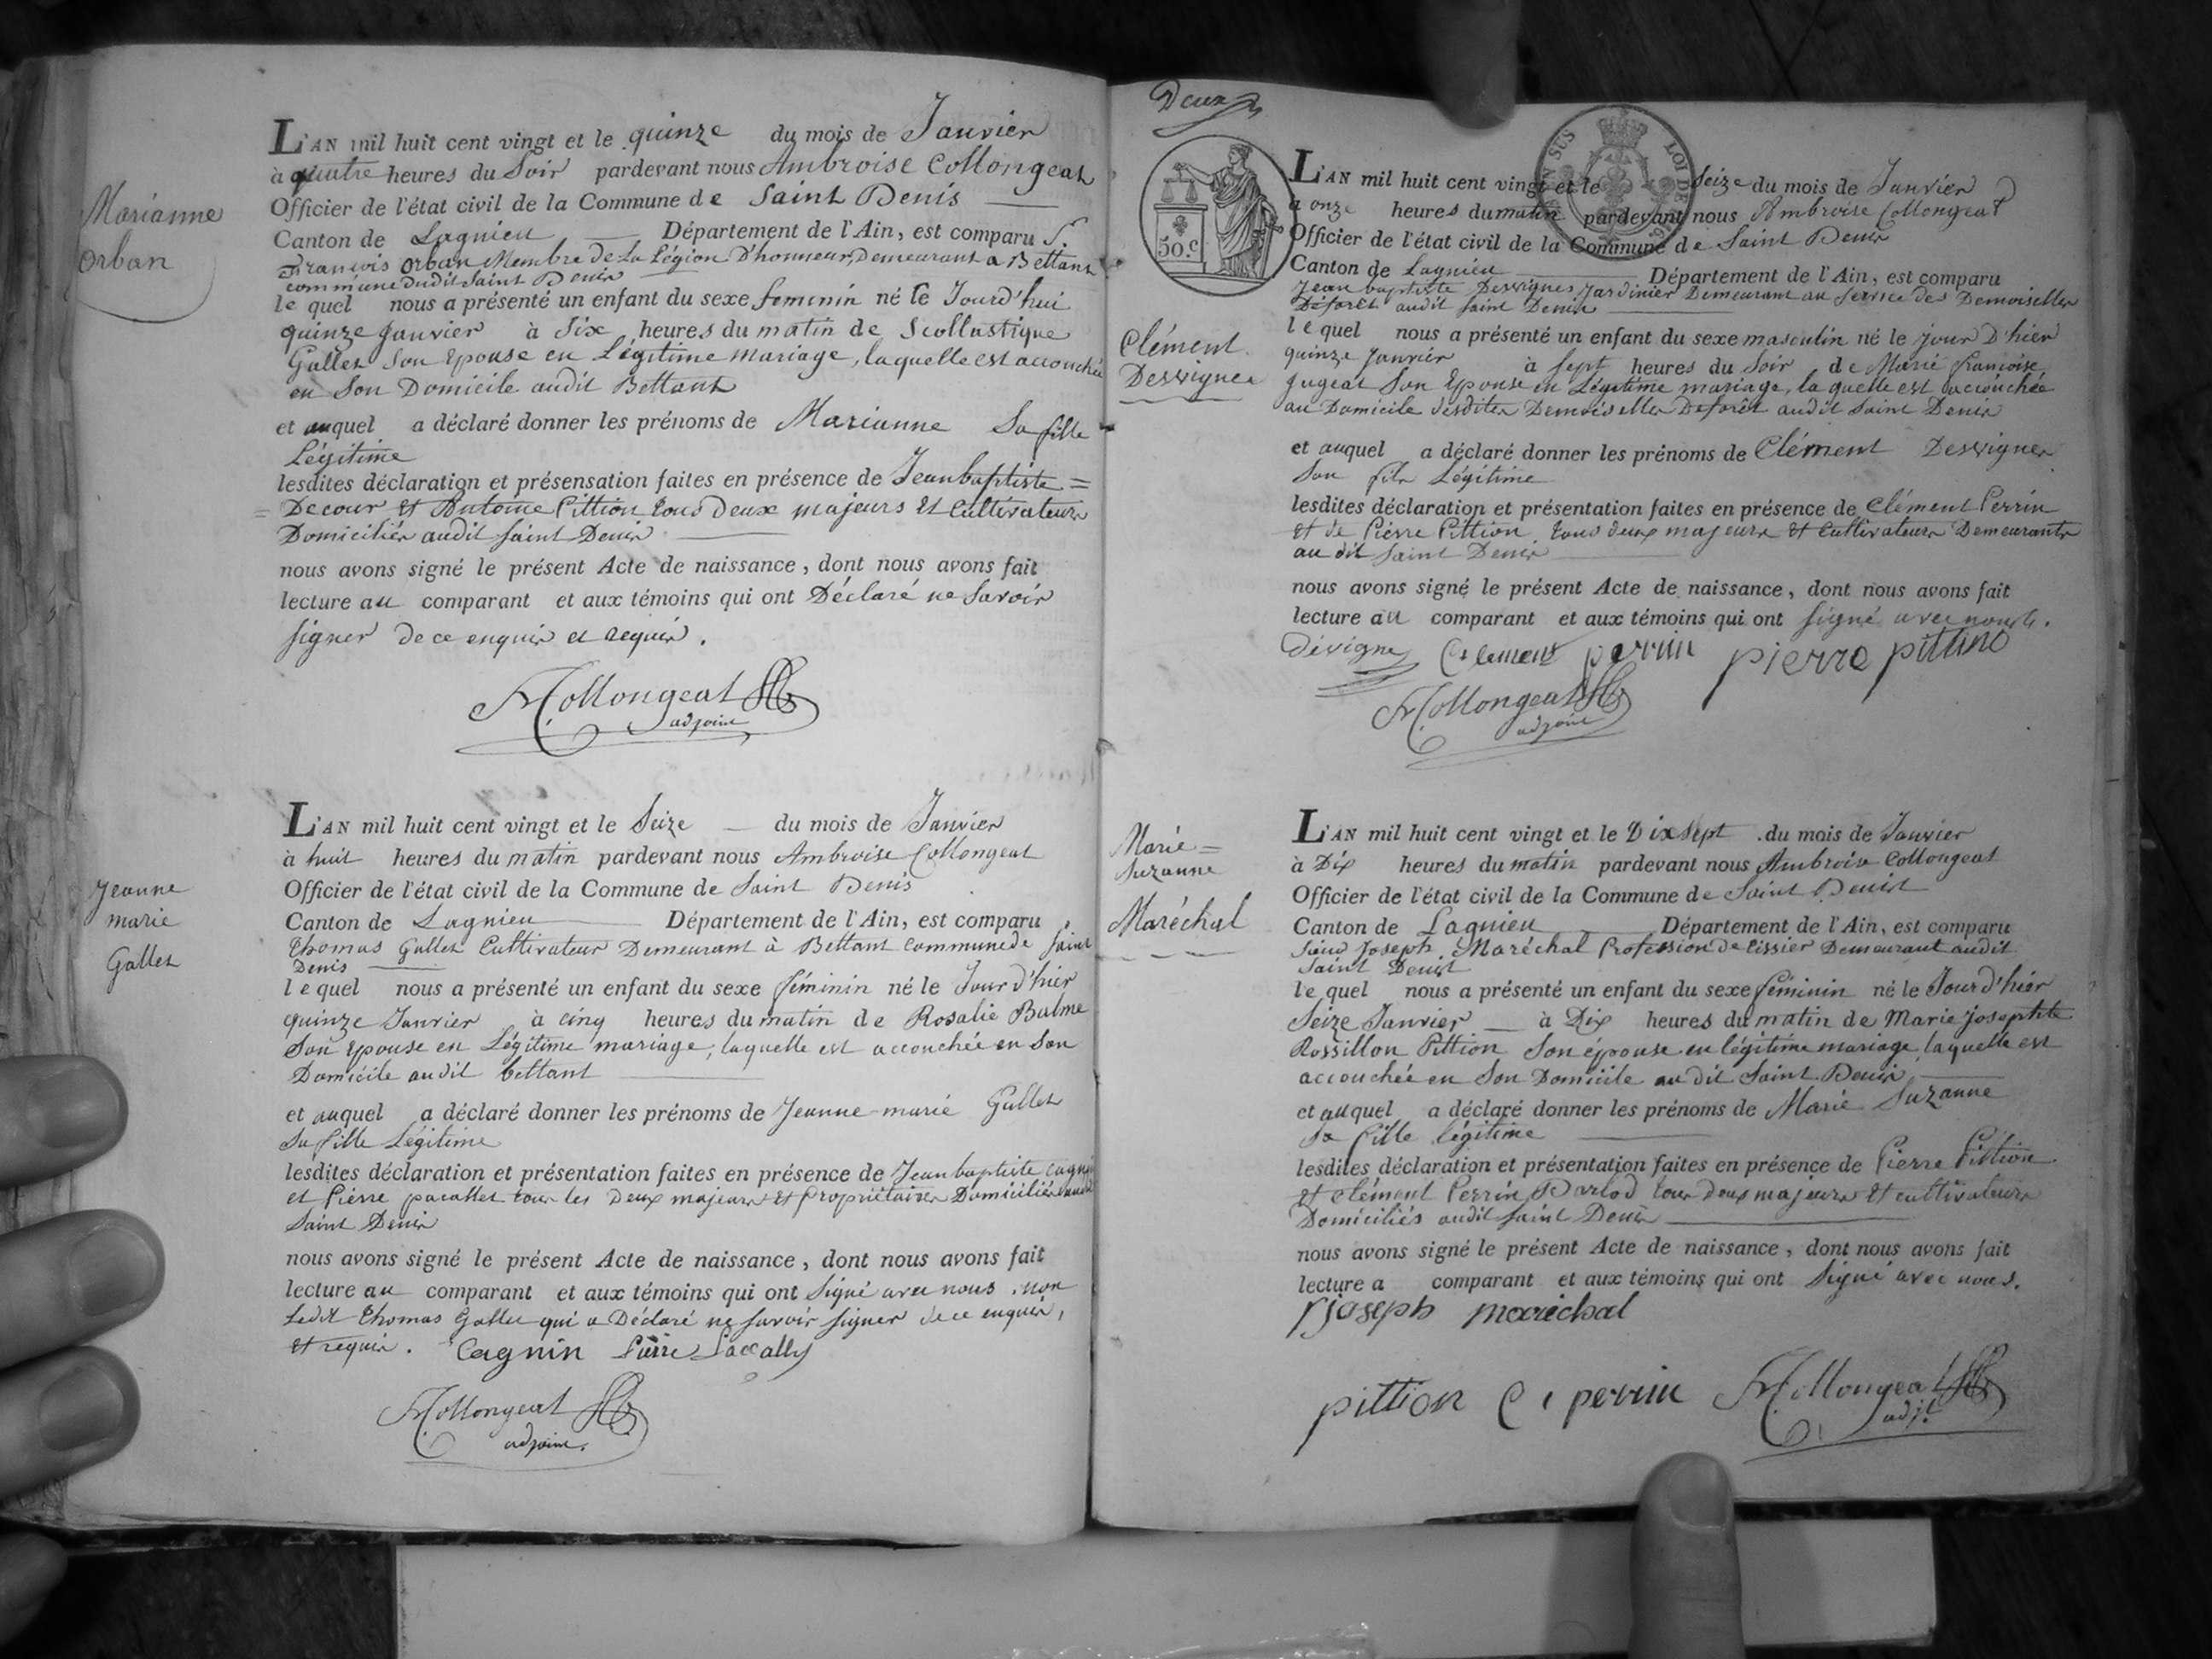 Marianne
Orban
L'AN mil huit cent vingt et le quinze du mois de Janvier
à quatre heures du Soir pardevant nous Ambroise Collongeat
Officier de l'état civil de la Commune de Saint Denis
Canton de Lagnieu Département de l'Ain, est comparu S.
François Orban Membre de La Légion D'honneur, Demeurant a Bettant
commune dudit Saint Denis
le quel nous a présenté un enfant du sexe feminin né le Jourd'hui
quinze Janvier à Six heures du matin de Scollastique
Gallet Son Epouse en Légitime mariage, laquelle est accouchée
en Son Domicile audit Bettant
et auquel a déclaré donner les prénoms de Marianne Sa fille
Légitime
lesdites déclaration et présensation faites en présence de Jeanbaptiste =
= Decour et Antoine Pittion tous deux majeurs et Cultivateurs
Domiciliés audit Saint Denis
nous avons signé le présent Acte de naissance, dont nous avons fait
lecture au comparant et aux témoins qui ont Déclaré ne Savoir
signer de ce enquis et requis.
Collongeat
adjoint
Jeanne
marie
Gallet
L'AN mil huit cent vingt et le Seize du mois de Janvier
à huit heures du matin pardevant nous Ambroise Collongeat
Officier de l'état civil de la Commune de Saint Denis
Canton de Lagnieu Département de l'Ain, est comparu
Thomas Gallet Cultivateur Demeurant à Bettant commune de Saint
Denis
le quel nous a présenté un enfant du sexe féminin né le Jour d'hier
quinze Janvier à cinq heures du matin de Rosalie Balme
Son Epouse en Légitime mariage, laquelle est accouchée en Son
Domicile audit bettant
et auquel a déclaré donner les prénoms de Jeanne-marie Gallet
Sa fille Légitime
lesdites déclaration et présentation faites en présence de Jeanbaptiste Cagnin
et Pierre pacallet tous les Deux majeurs et Propriétaires Domiciliés audit
Saint Denis
nous avons signé le présent Acte de naissance, dont nous avons fait
lecture au comparant et aux témoins qui ont Signé avec nous, non
Ledit Thomas Gallet qui a Déclaré ne savoir signer de ce enquis,
et requis. Cagnin Pierre
Collongeat
adjoint.
Deux
50.c
Clément
Desvignes
L'AN mil huit cent vingt et le Seize du mois de Janvier
a onze heures du matin pardevant nous Ambroise Collongeat
Officier de l'état civil de la Commune de Saint Denis
Canton de Lagnieu Département de l'Ain, est comparu
Jean baptiste Desvignes Jardinier Demeurant au Service des Demoiselles
Deforêt audit Saint Denis
le quel nous a présenté un enfant du sexe masculin né le jour D'hier
quinze Janvier à Sept heures du Soir de Marie françoise
Jugeat Son Epouse en Légitime mariage, la quelle est accouchée
au Domicile desdites Demoiselles Deforêt audit Saint Denis
et auquel a déclaré donner les prénoms de Clément Desvignes
Son fils Légitime
lesdites déclaration et présentation faites en présence de Clément Perrin
et de Pierre Pittion tous deux majeurs et Cultivateurs Demeurants
au dit Saint Denis
nous avons signé le présent Acte de naissance, dont nous avons fait
lecture au comparant et aux témoins qui ont signé avec nous.
Dévigne Clement perrin pierre
Collongeat
adjoint
Marie =
Suzanne
Maréchal
L'AN mil huit cent vingt et le Dix Sept du mois de Janvier
à Dix heures du matin pardevant nous Ambroise Collongeat
Officier de l'état civil de la Commune de Saint Denis
Canton de Lagnieu Département de l'Ain, est comparu
Joseph Maréchal Profession de tissier Demeurant audit
Saint Denis
le quel nous a présenté un enfant du sexe féminin né le Jour d'hier
Seize Janvier à Dix heures du matin de Marie Josephte
Rossillon Pittion Son épouse en légitime mariage, laquelle est
accouchée en Son Domicile audit Saint Denis
et auquel a déclaré donner les prénoms de Marie Suzanne
Sa fille légitime
lesdites déclaration et présentation faites en présence de Pierre Pittion
et Clément Perrin tous deux majeurs et cultivateurs
Domiciliés audit Saint Denis
nous avons signé le présent Acte de naissance, dont nous avons fait
lecture a comparant et aux témoins qui ont Signé avec nous.
joseph marechal
pittion C perrin Collongeat
adjt